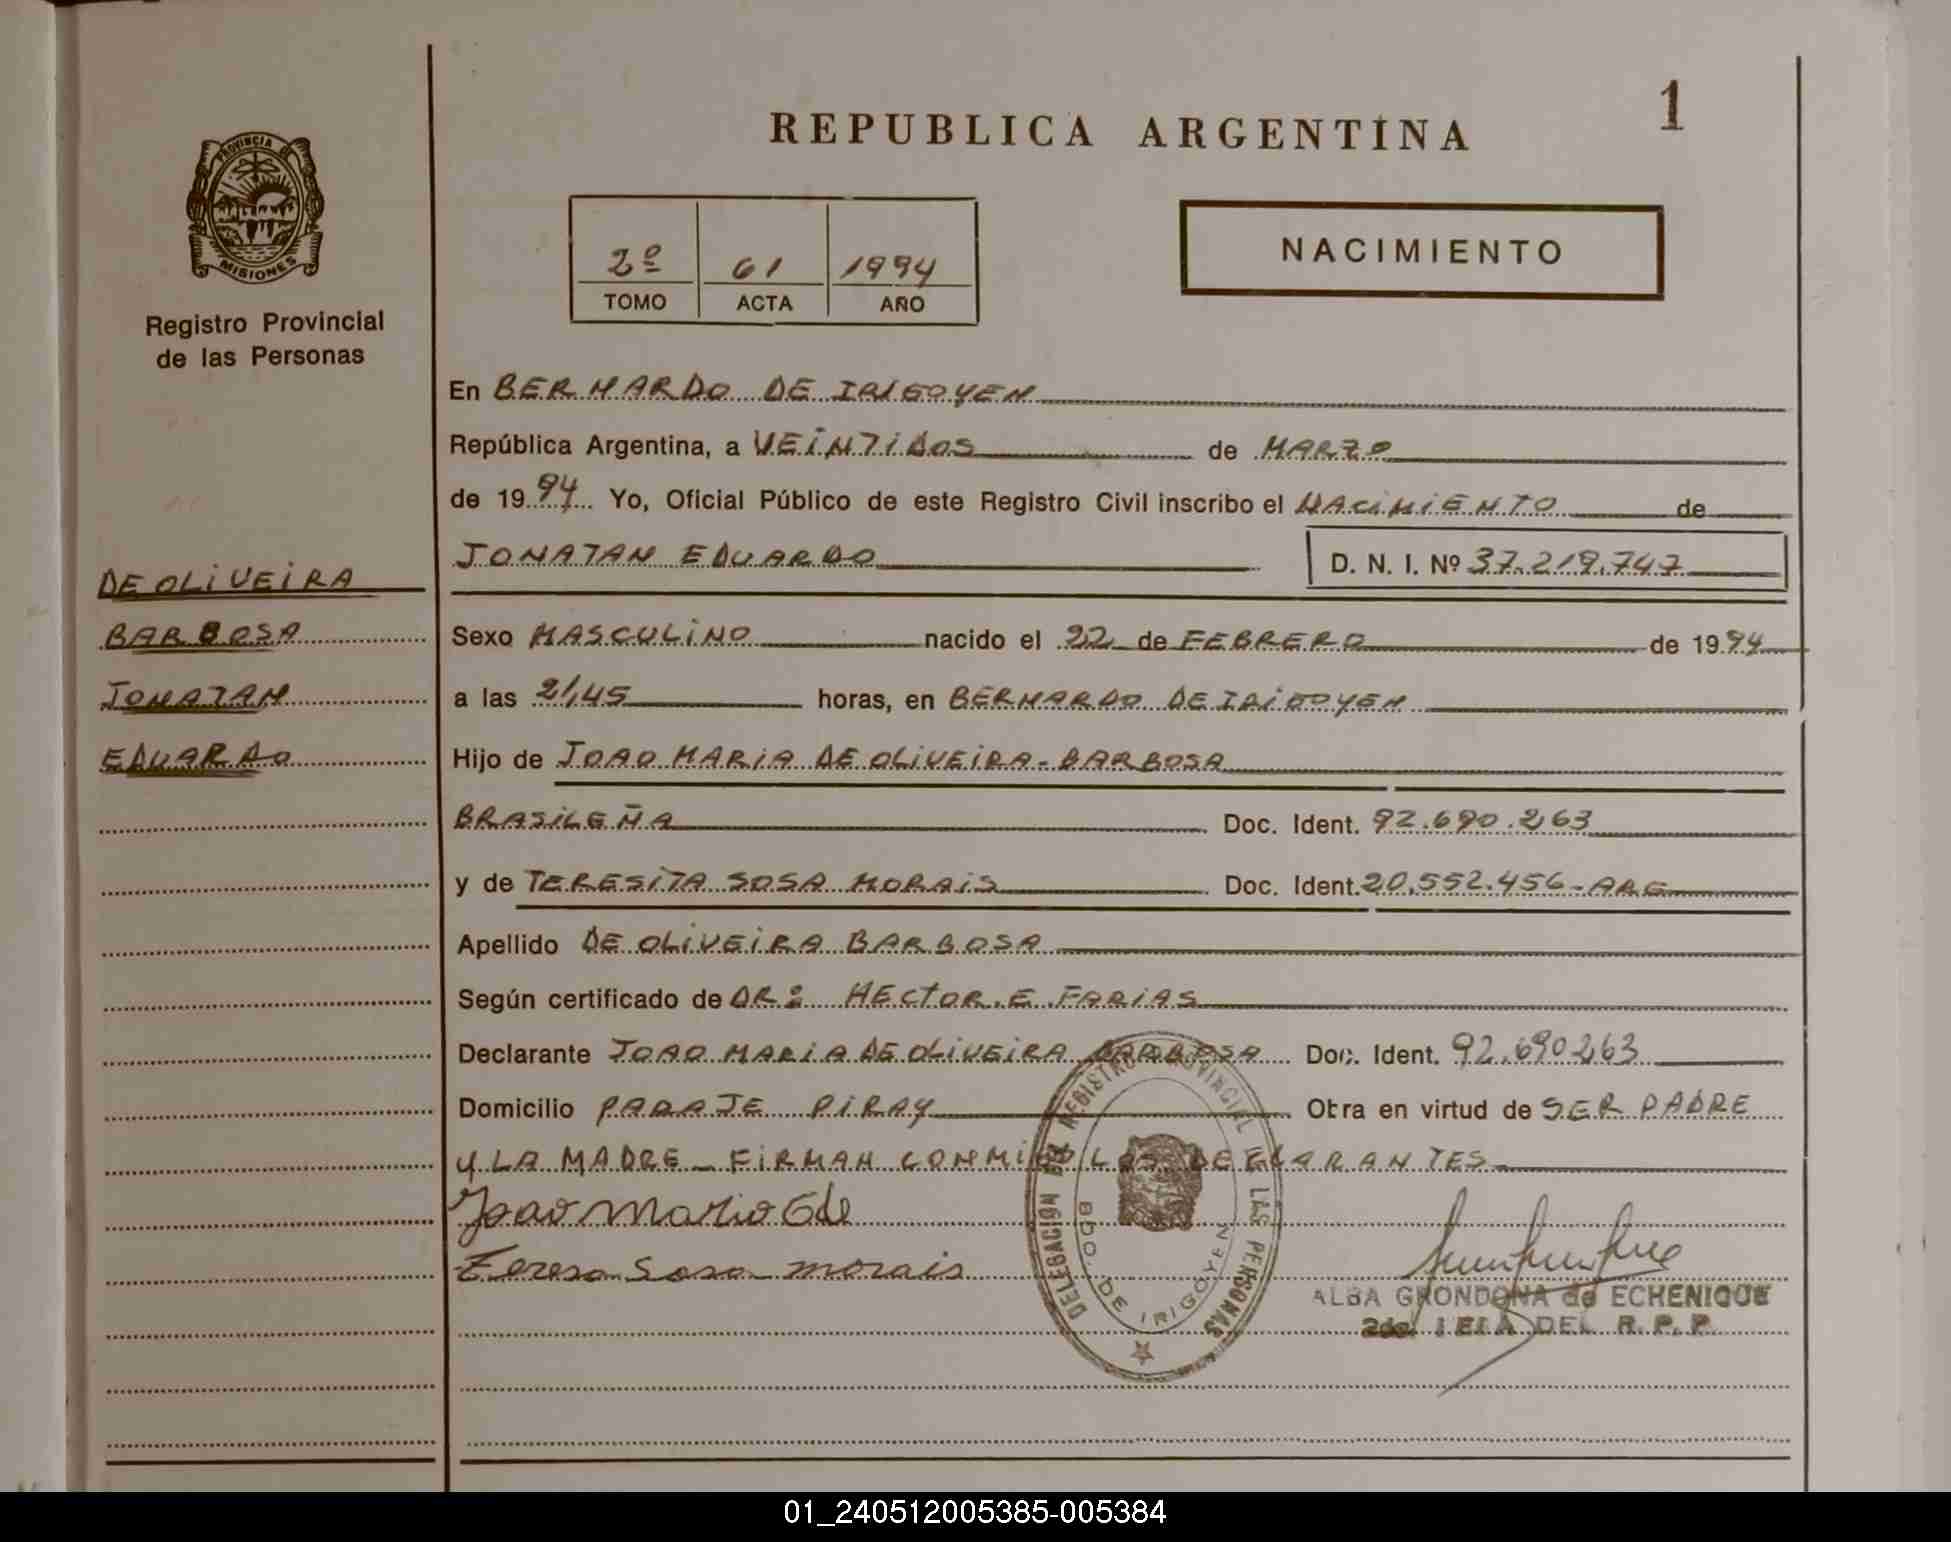 REPUBLICA ARGENTINA
1
PROVINCIA DE
MISIONES
Registro Provincial
de las Personas
2º 61 1994
TOMO ACTA AÑO
NACIMIENTO
En BERNARDO DE IRIGOYEN
República Argentina, a VEINTIDOS de MARZO
de 1994 Yo, Oficial Público de este Registro Civil inscribo el NACIMIENTO de
JONATAN EDUARDO D. N. I. Nº 37.219.747
DE OLIVEIRA
BARBOSA
JONATAN
EDUARDO
Sexo MASCULINO nacido el 22 de FEBRERO de 1994
a las 21,45 horas, en BERNARDO DE IRIGOYEN
Hijo de JOAO MARIA DE OLIVEIRA-BARBOSA
BRASILEÑA Doc. Ident. 92.690.263
y de TERESITA SOSA MORAIS Doc. Ident. 20.552.456-ARG
Apellido DE OLIVEIRA BARBOSA
Según certificado de DR: HECTOR.E.FARIAS
Declarante JOAO MARIA DE OLIVEIRA BARBOSA Doc. Ident. 92.690263
Domicilio PARAJE PIRAY Obra en virtud de SER PADRE
Y LA MADRE_FIRMAN CONMIGO LOS DECLARANTES
Joao Mario
Teresa Sosa morais
DELEGACION DEL REGISTRO PROVINCIAL DE LAS PERSONAS
BDO. DE IRIGOYEN
ALBA GRONDONA de ECHENIQUE
DEL R.P.P.
01_240512005385-005384